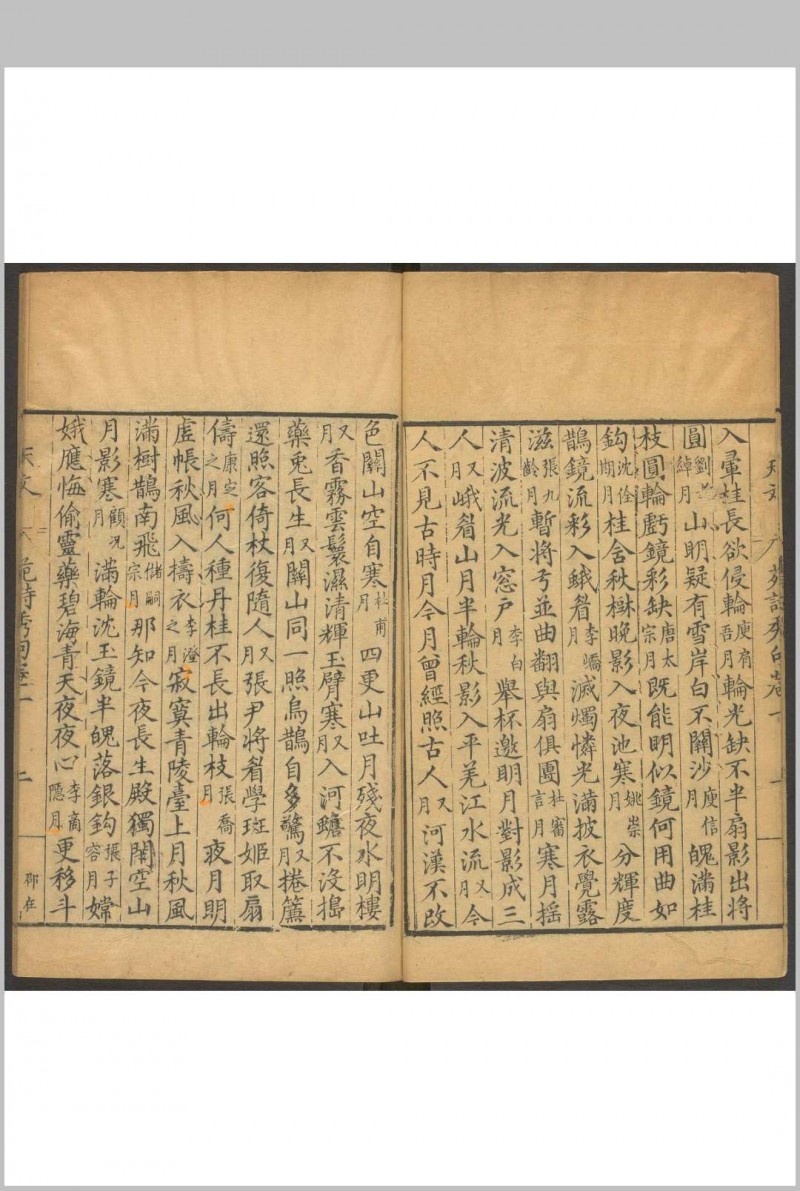 入暈桂長欲侵輪庾肩吾月輪光缺不半扇影出將
圓劉孝綽月山明疑有雪岸白不關沙庾信月魄滿桂
枝圓輪虧鏡彩缺唐太宗月既能明似鏡何用曲如
鈎沈佺期月桂含秋樹晚影入夜池寒姚崇月分輝度
鵲鏡流彩入蛾眉李嶠月滅燭憐光滿披衣覺露
滋張九齡月暫將弓並曲翻與扇俱團杜審言月寒月搖
清波流光入窓戶李白月舉杯邀明月對影成三
人又月峨眉山月半輪秋影入平羌江水流又月今
人不見古時月今月曾經照古人又月河漢不改
色關山空自寒杜甫月四更山吐月殘夜水明樓
又月香霧雲鬟濕清輝玉臂寒又月入河蟾不沒搗
藥兎長生又月關山同一照烏鵲自多驚又月捲簾
還照客倚杖復隨人又月張尹將眉學班姬取扇
儔康定之月何人種丹桂不長出輪枝張喬月夜月明
虛帳秋風入擣衣李澄之月寂寞青陵臺上月秋風
滿樹鵲南飛儲嗣宗月那知今夜長生殿獨閉空山
月影寒顧況月滿輪沈玉鏡半魄落銀鈎張子容月嫦
娥應悔偷靈藥碧海青天夜夜心李商隱月更移斗
天文